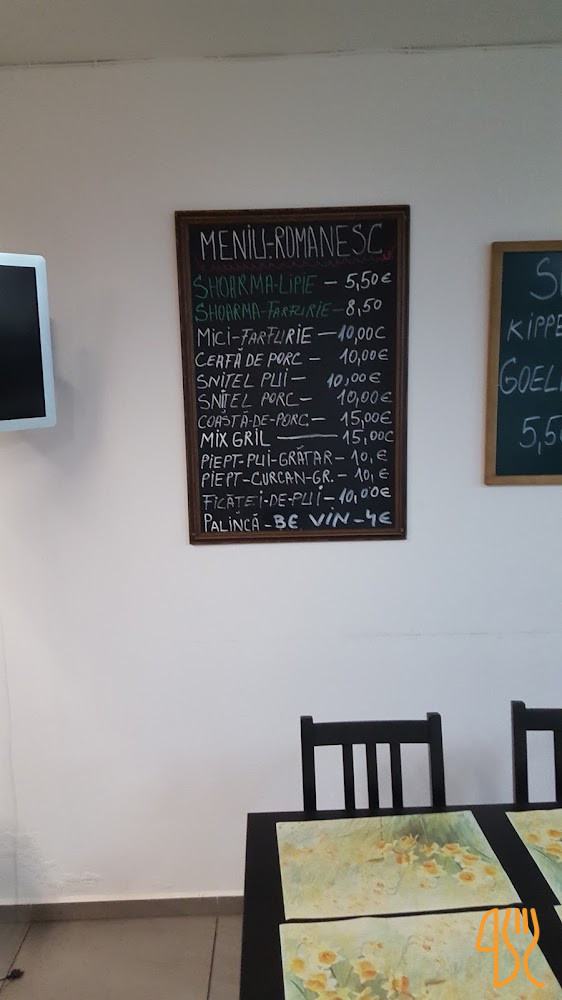 MENIU-ROMANESC
SHOARMA-LIPIE — 5,50€
SHOARMA-FARFURIE — 8,50
MICI-FARFURIE — 10,00€
CEAFĂ DE PORC — 10,00€
SNIȚEL PUI — 10,00€
SNIȚEL PORC — 10,00€
COASTĂ-DE-PORC — 15,00€
MIX GRIL — 15,00€
PIEPT-PUI-GRĂTAR — 10,€
PIEPT-CURCAN-GR. — 10,€
FICĂȚEI-DE-PUI — 10,00€
PALINCĂ - BE VIN - 4€
KIPPE
GOEL
5,5